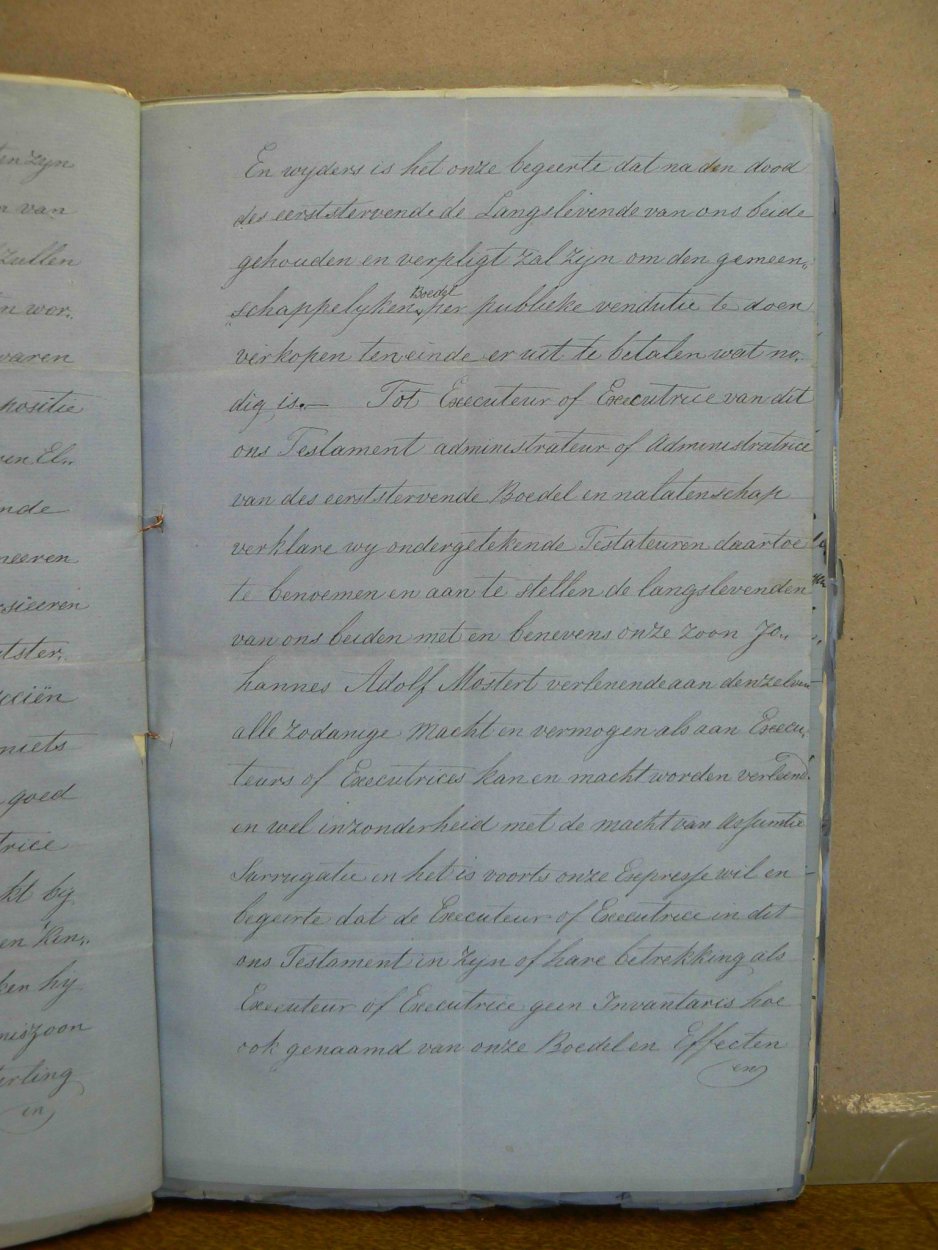 En wyders is het onze begeerte dat na den dood
des eerststervende de Langslevende van ons beide
gehouden en verpligt zal zijn om den gemeen„
schappelyken Boedel per publieke vendutie te doen
verkopen ten einde er uit te betalen wat no„
dig is.— Tot Executeur of Executrice van dit
ons Testament administrateur of Administratrice
van des eerststervende Boedel en nalatenschap
verklare wy ondergetekende Testateuren daartoe
te benoemen en aan te stellen de langslevenden
van ons beiden met en benevens onze zoon Jo„
hannes Adolf Mostert verlenende aan denzelven
alle zodanige Macht en vermogen als aan Execu„
teurs of Executrices kan en macht worden verleend
en wel inzonderheid met de macht van Assumtie
Surrugatie en het is voorts onze Expresse wil en
begeerte dat de Executeur of Executrice in dit
ons Testament in zyn of hare betrekking als
Executeur of Executrice geen Invantaris hoe
ook genaamd van onze Boedel en Effecten
en
ten zyn
van
zullen
wor„
waren
positie
en El„
nde
neeren
tster„
niets
goed
trice
kt by
en Kin„
ken hy
niszoon
erling
en